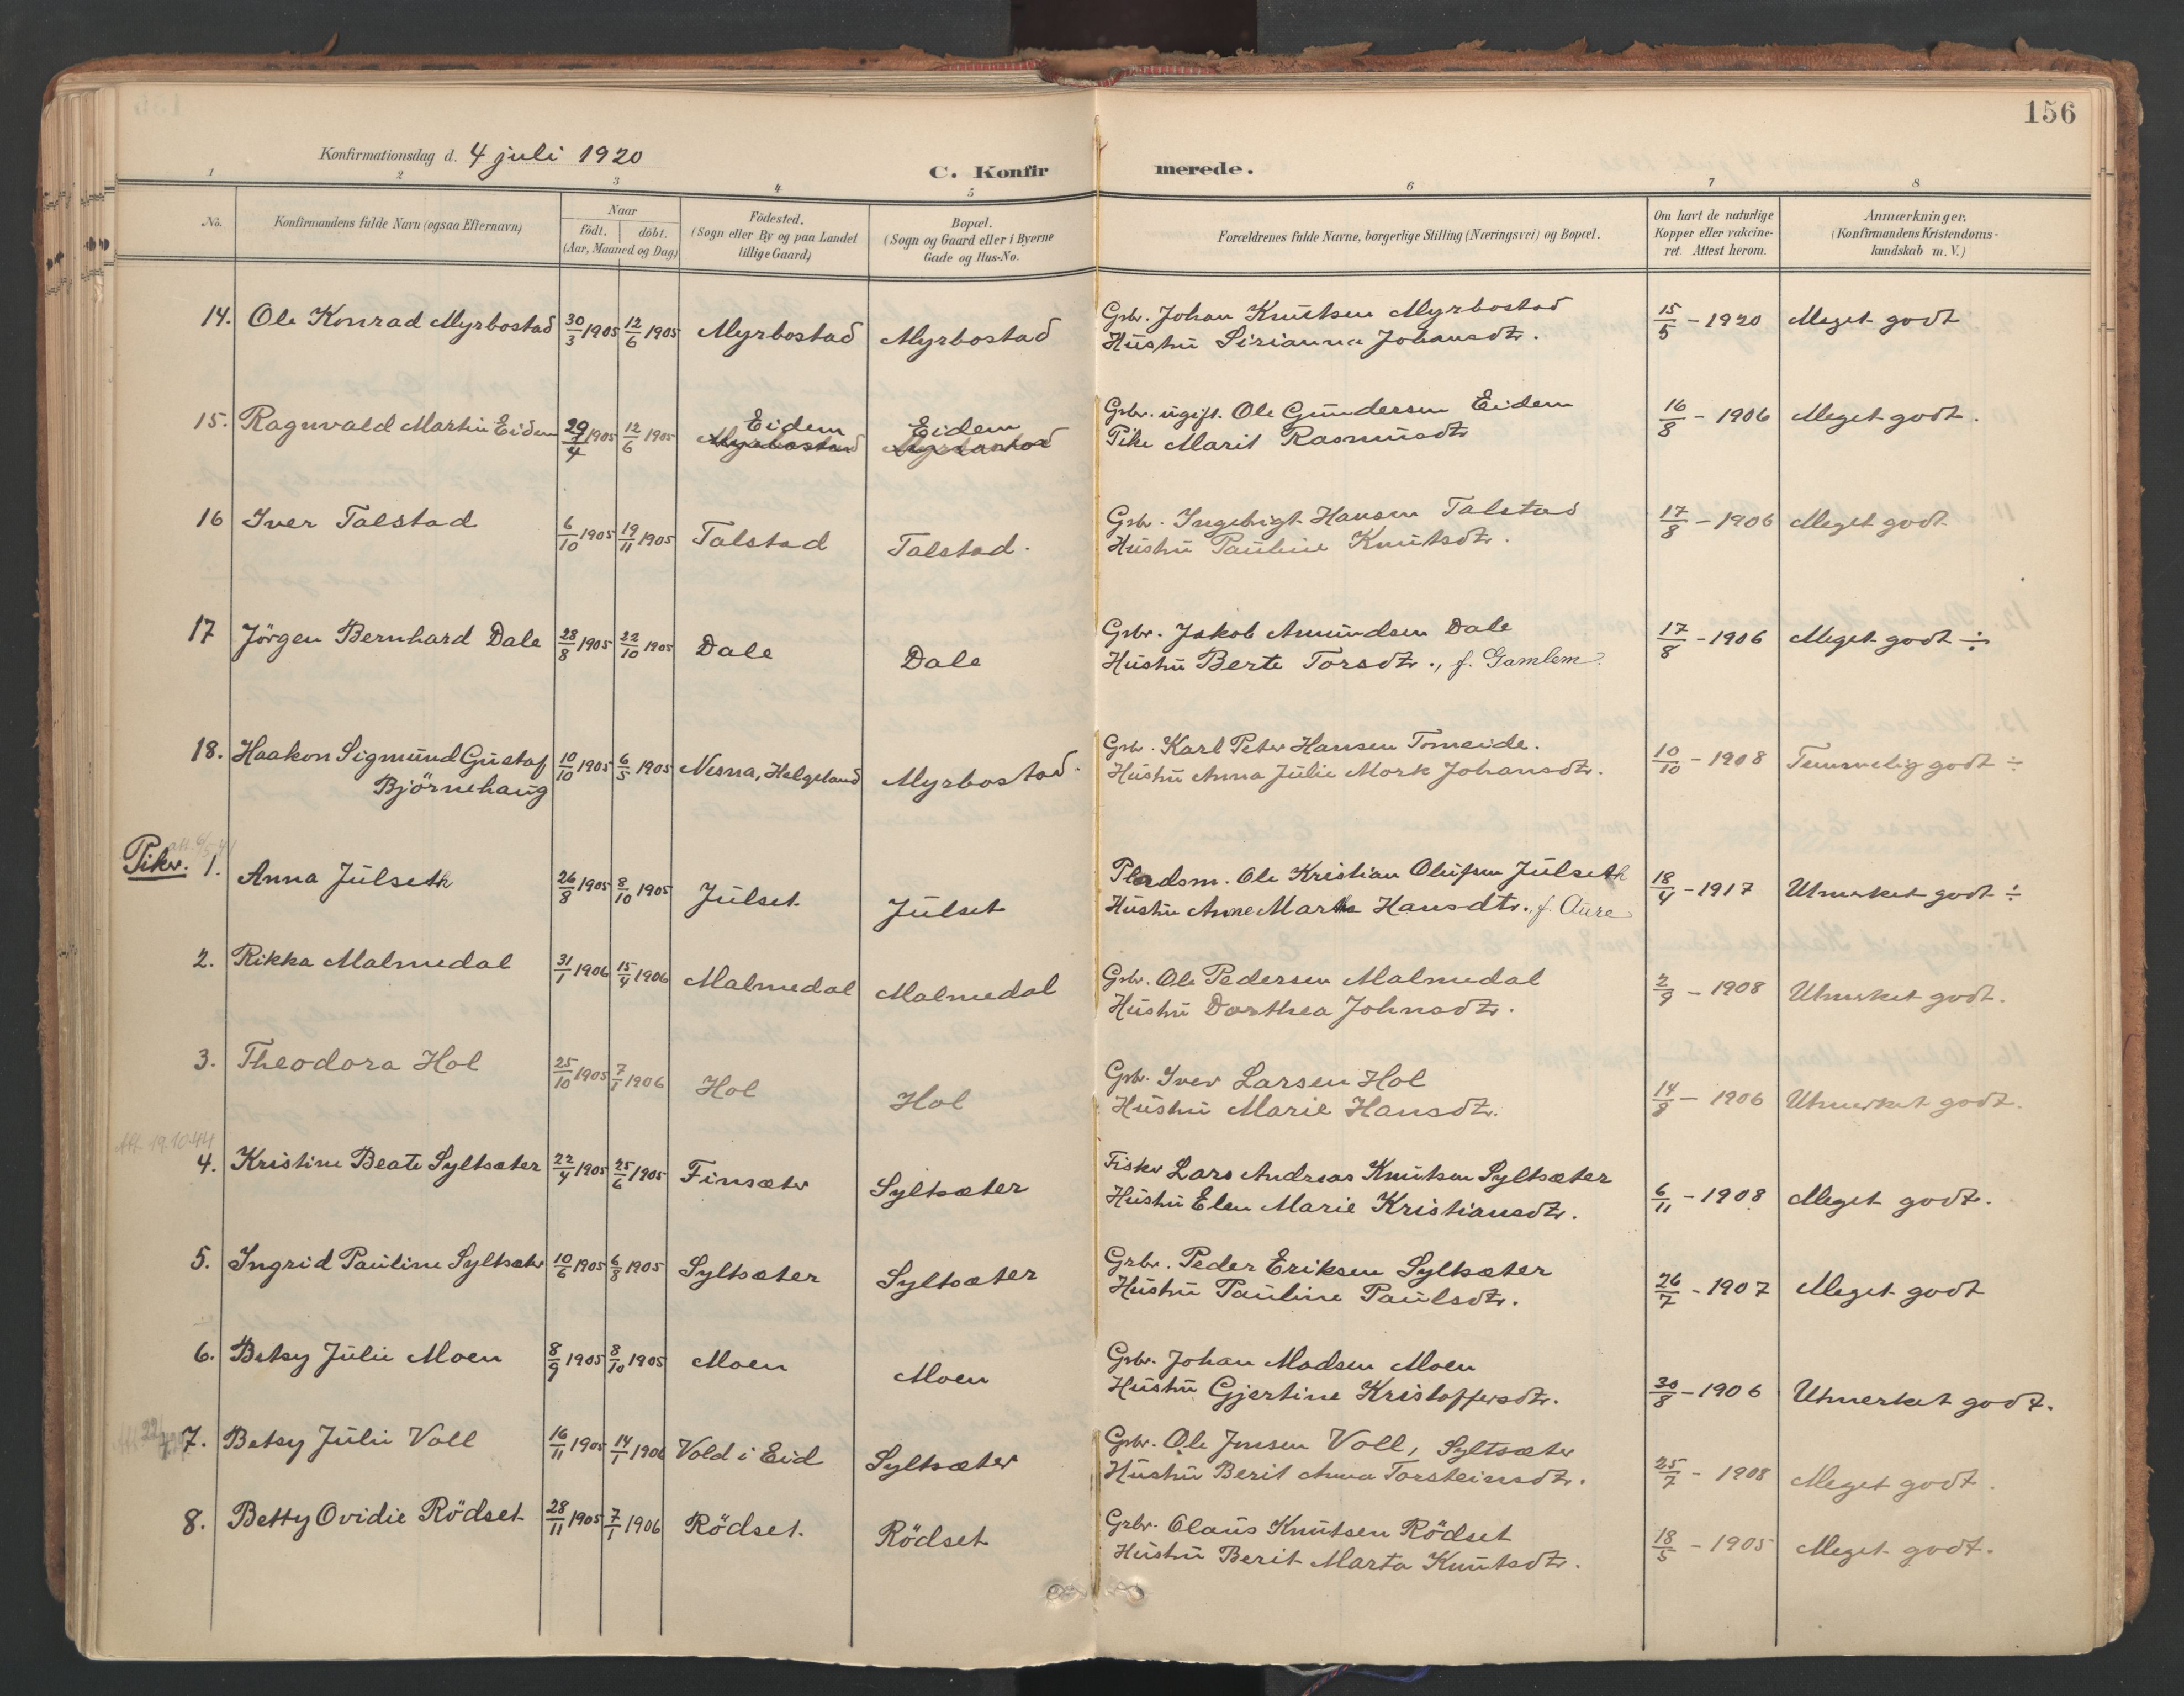 156
Konfirmationsdag d. 4 juli 1920
C. Konfirmerede.
1 2 3 4 5 6 7 8
No. Konfirmandens fulde Navn (ogsaa Efternavn) Naar födt. döbt. (Aar, Maaned og Dag) Födested. (Sogn eller By og paa Landet tillige Gaard) Bopæl. (Sogn og Gaard eller i Byerne Gade og Hus-No. Forældrenes fulde Navne, borgerlige Stilling (Næringsvei) og Bopæl. Om havt de naturlige Kopper eller vakcineret. Attest herom. Anmærkninger. (Konfirmandens Kristendomskundskab m. V.)
14. Ole Konrad Myrbostad 30/3 1905 12/6 1905 Myrbostad Myrbostad Grbr. Johan Knutsen Myrbostad 15/5 - 1920 Meget godt
Hustru Sirianna Johansdtr.
15. Ragnvald Martin Eidem 29/4 1905 12/6 1905 Eidem Eidem Grbr. ugift. Ole Gundersen Eidem 16/8 - 1906 Meget godt.
Myrbostad Myrbostad Pike Marit Rasmusdtr
16 Iver Talstad 6/10 1905 19/11 1905 Talstad Talstad. Grbr. Ingebrigt Hansen Talstad 17/8 - 1906 Meget godt
Hustru Pauline Knutsdtr.
17 Jörgen Bernhard Dale 28/8 1905 22/10 1905 Dale Dale Grbr. Jakob Amundsen Dale 17/8 - 1906 Meget godt ÷
Hustru Berte Torsdtr., f. Gamlem.
18. Haakon Sigmund Gustaf 10/10 1905 6/5 1905 Nesna, Helgeland Myrbostad. Grbr. Karl Peter Hansen Tomeide. 10/10 - 1908 Temmelig godt ÷
Björnehaug Hustru Anna Julie Mork Johansdtr.
Piker. 1. Anna Julseth 26/8 1905 8/10 1905 Julset Julset Pladsm. Ole Kristian Olufsen Julseth 18/4 - 1917 Utmerket godt ÷
Hustru Anne Martha Hansdtr., f. Aure
2. Rikka Malmedal 31/1 1906 15/4 1906 Malmedal Malmedal Grbr. Ole Pedersen Malmedal 2/9 - 1908 Utmerket godt.
Hustru Dorthea Johnsdtr.
3. Theodora Hol 25/10 1905 7/1 1906 Hol Hol Grb. Iver Larsen Hol 14/8 - 1906 Utmerket godt.
Hustru Marie Hansdtr.
Att. 19.10.44
4. Kristine Beate Syltsæter 22/4 1905 25/6 1905 Finsæter Syltsæter Fisker Lars Andreas Knutsen Syltsæter 6/11 - 1908 Meget godt.
Hustru Elen Marie Kristiansdtr.
5. Ingrid Pauline Syltsæter 10/6 1905 6/8 1905 Syltsæter Syltsæter Grbr. Peder Eriksen Syltsæter 26/7 - 1907 Meget godt
Hustru Pauline Paulsdtr.
6. Betsy Julie Moen 8/9 1905 8/10 1905 Moen Moen Grbr. Johan Madsen Moen 30/8 - 1906 Utmerket godt.
Hustru Gjertine Kristoffersdtr.
7. Betsy Julie Voll 16/11 1905 14/1 1906 Vold i Eid Syltsæter Grbr. Ole Jensen Voll, Syltsæter 25/7 - 1908 Meget godt.
Hustru Berit Anna Torsteinsdtr.
8. Betty Ovidie Rödset 28/11 1905 7/1 1906 Rödset. Rödset Grbr. Olaus Knutsen Rödset 18/5 - 1905 Meget godt.
Hustru Berit Marta Knutsdtr.